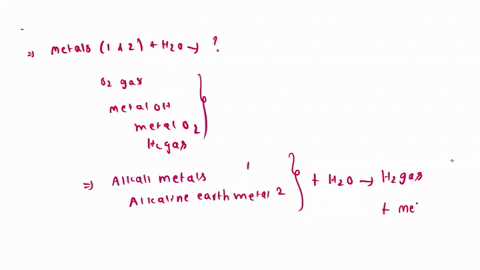 ⇒ metals (1 & 2) + H2O → ?
O2 gas
metal OH
metal O2
H2 gas
⇒ Alkali metals 1
Alkaline earth metal 2 + H2O → H2 gas
+ me